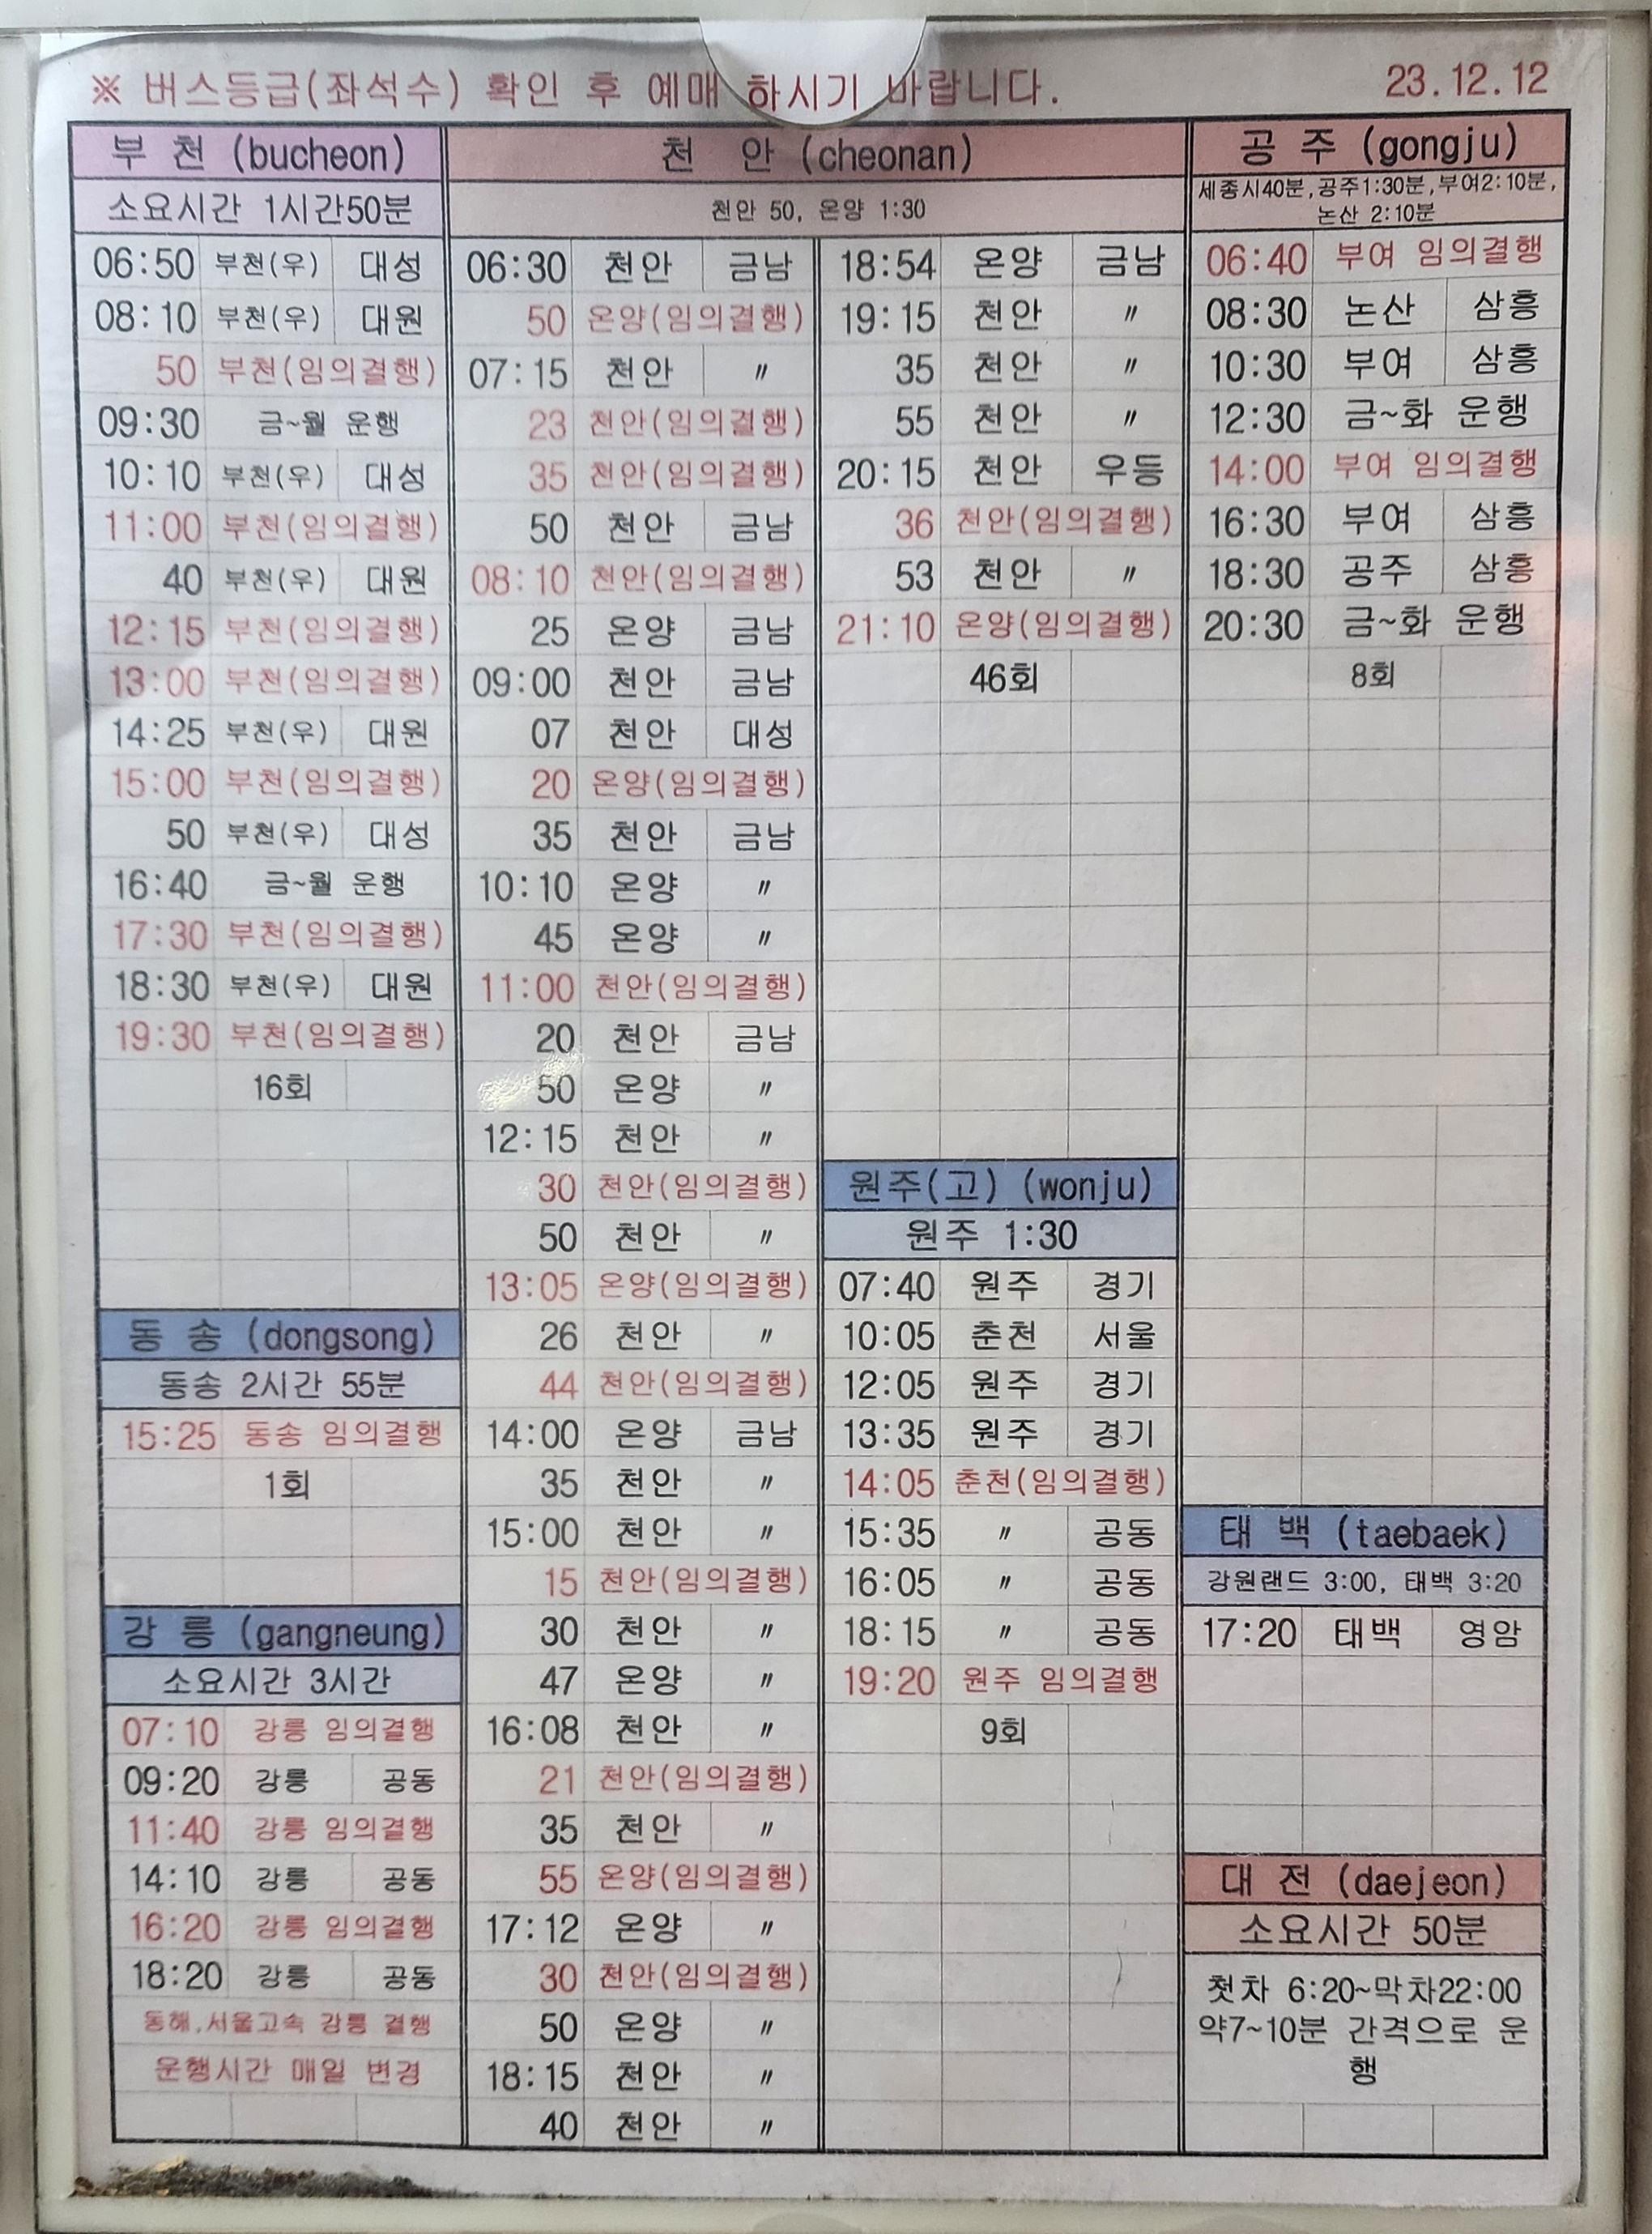 ※ 버스등급(좌석수) 확인 후 예매 하시기 바랍니다.
23.12.12
부 천 (bucheon)
소요시간 1시간50분
06:50 부천(우) 대성
08:10 부천(우) 대원
50 부천(임의결행)
09:30 금~월 운행
10:10 부천(우) 대성
11:00 부천(임의결행)
40 부천(우) 대원
12:15 부천(임의결행)
13:00 부천(임의결행)
14:25 부천(우) 대원
15:00 부천(임의결행)
50 부천(우) 대성
16:40 금~월 운행
17:30 부천(임의결행)
18:30 부천(우) 대원
19:30 부천(임의결행)
16회
동 송 (dongsong)
동송 2시간 55분
15:25 동송 임의결행
1회
강 릉 (gangneung)
소요시간 3시간
07:10 강릉 임의결행
09:20 강릉 공동
11:40 강릉 임의결행
14:10 강릉 공동
16:20 강릉 임의결행
18:20 강릉 공동
동해,서울고속 강릉 결행
운행시간 매일 변경
천 안 (cheonan)
천안 50, 온양 1:30
06:30 천안 금남
50 온양(임의결행)
07:15 천안 〃
23 천안(임의결행)
35 천안(임의결행)
50 천안 금남
08:10 천안(임의결행)
25 온양 금남
09:00 천안 금남
07 천안 대성
20 온양(임의결행)
35 천안 금남
10:10 온양 〃
45 온양 〃
11:00 천안(임의결행)
20 천안 금남
50 온양 〃
12:15 천안 〃
30 천안(임의결행)
50 천안 〃
13:05 온양(임의결행)
26 천안 〃
44 천안(임의결행)
14:00 온양 금남
35 천안 〃
15:00 천안 〃
15 천안(임의결행)
30 천안 〃
47 온양 〃
16:08 천안 〃
21 천안(임의결행)
35 천안 〃
55 온양(임의결행)
17:12 온양 〃
30 천안(임의결행)
50 온양 〃
18:15 천안 〃
40 천안 〃
18:54 온양 금남
19:15 천안 〃
35 천안 〃
55 천안 〃
20:15 천안 우등
36 천안(임의결행)
53 천안 〃
21:10 온양(임의결행)
46회
원주(고) (wonju)
원주 1:30
07:40 원주 경기
10:05 춘천 서울
12:05 원주 경기
13:35 원주 경기
14:05 춘천(임의결행)
15:35 〃 공동
16:05 〃 공동
18:15 〃 공동
19:20 원주 임의결행
9회
공 주 (gongju)
세종시40분,공주1:30분,부여2:10분,
논산 2:10분
06:40 부여 임의결행
08:30 논산 삼흥
10:30 부여 삼흥
12:30 금~화 운행
14:00 부여 임의결행
16:30 부여 삼흥
18:30 공주 삼흥
20:30 금~화 운행
8회
태 백 (taebaek)
강원랜드 3:00, 태백 3:20
17:20 태백 영암
대 전 (daejeon)
소요시간 50분
첫차 6:20~막차22:00
약7~10분 간격으로 운
행